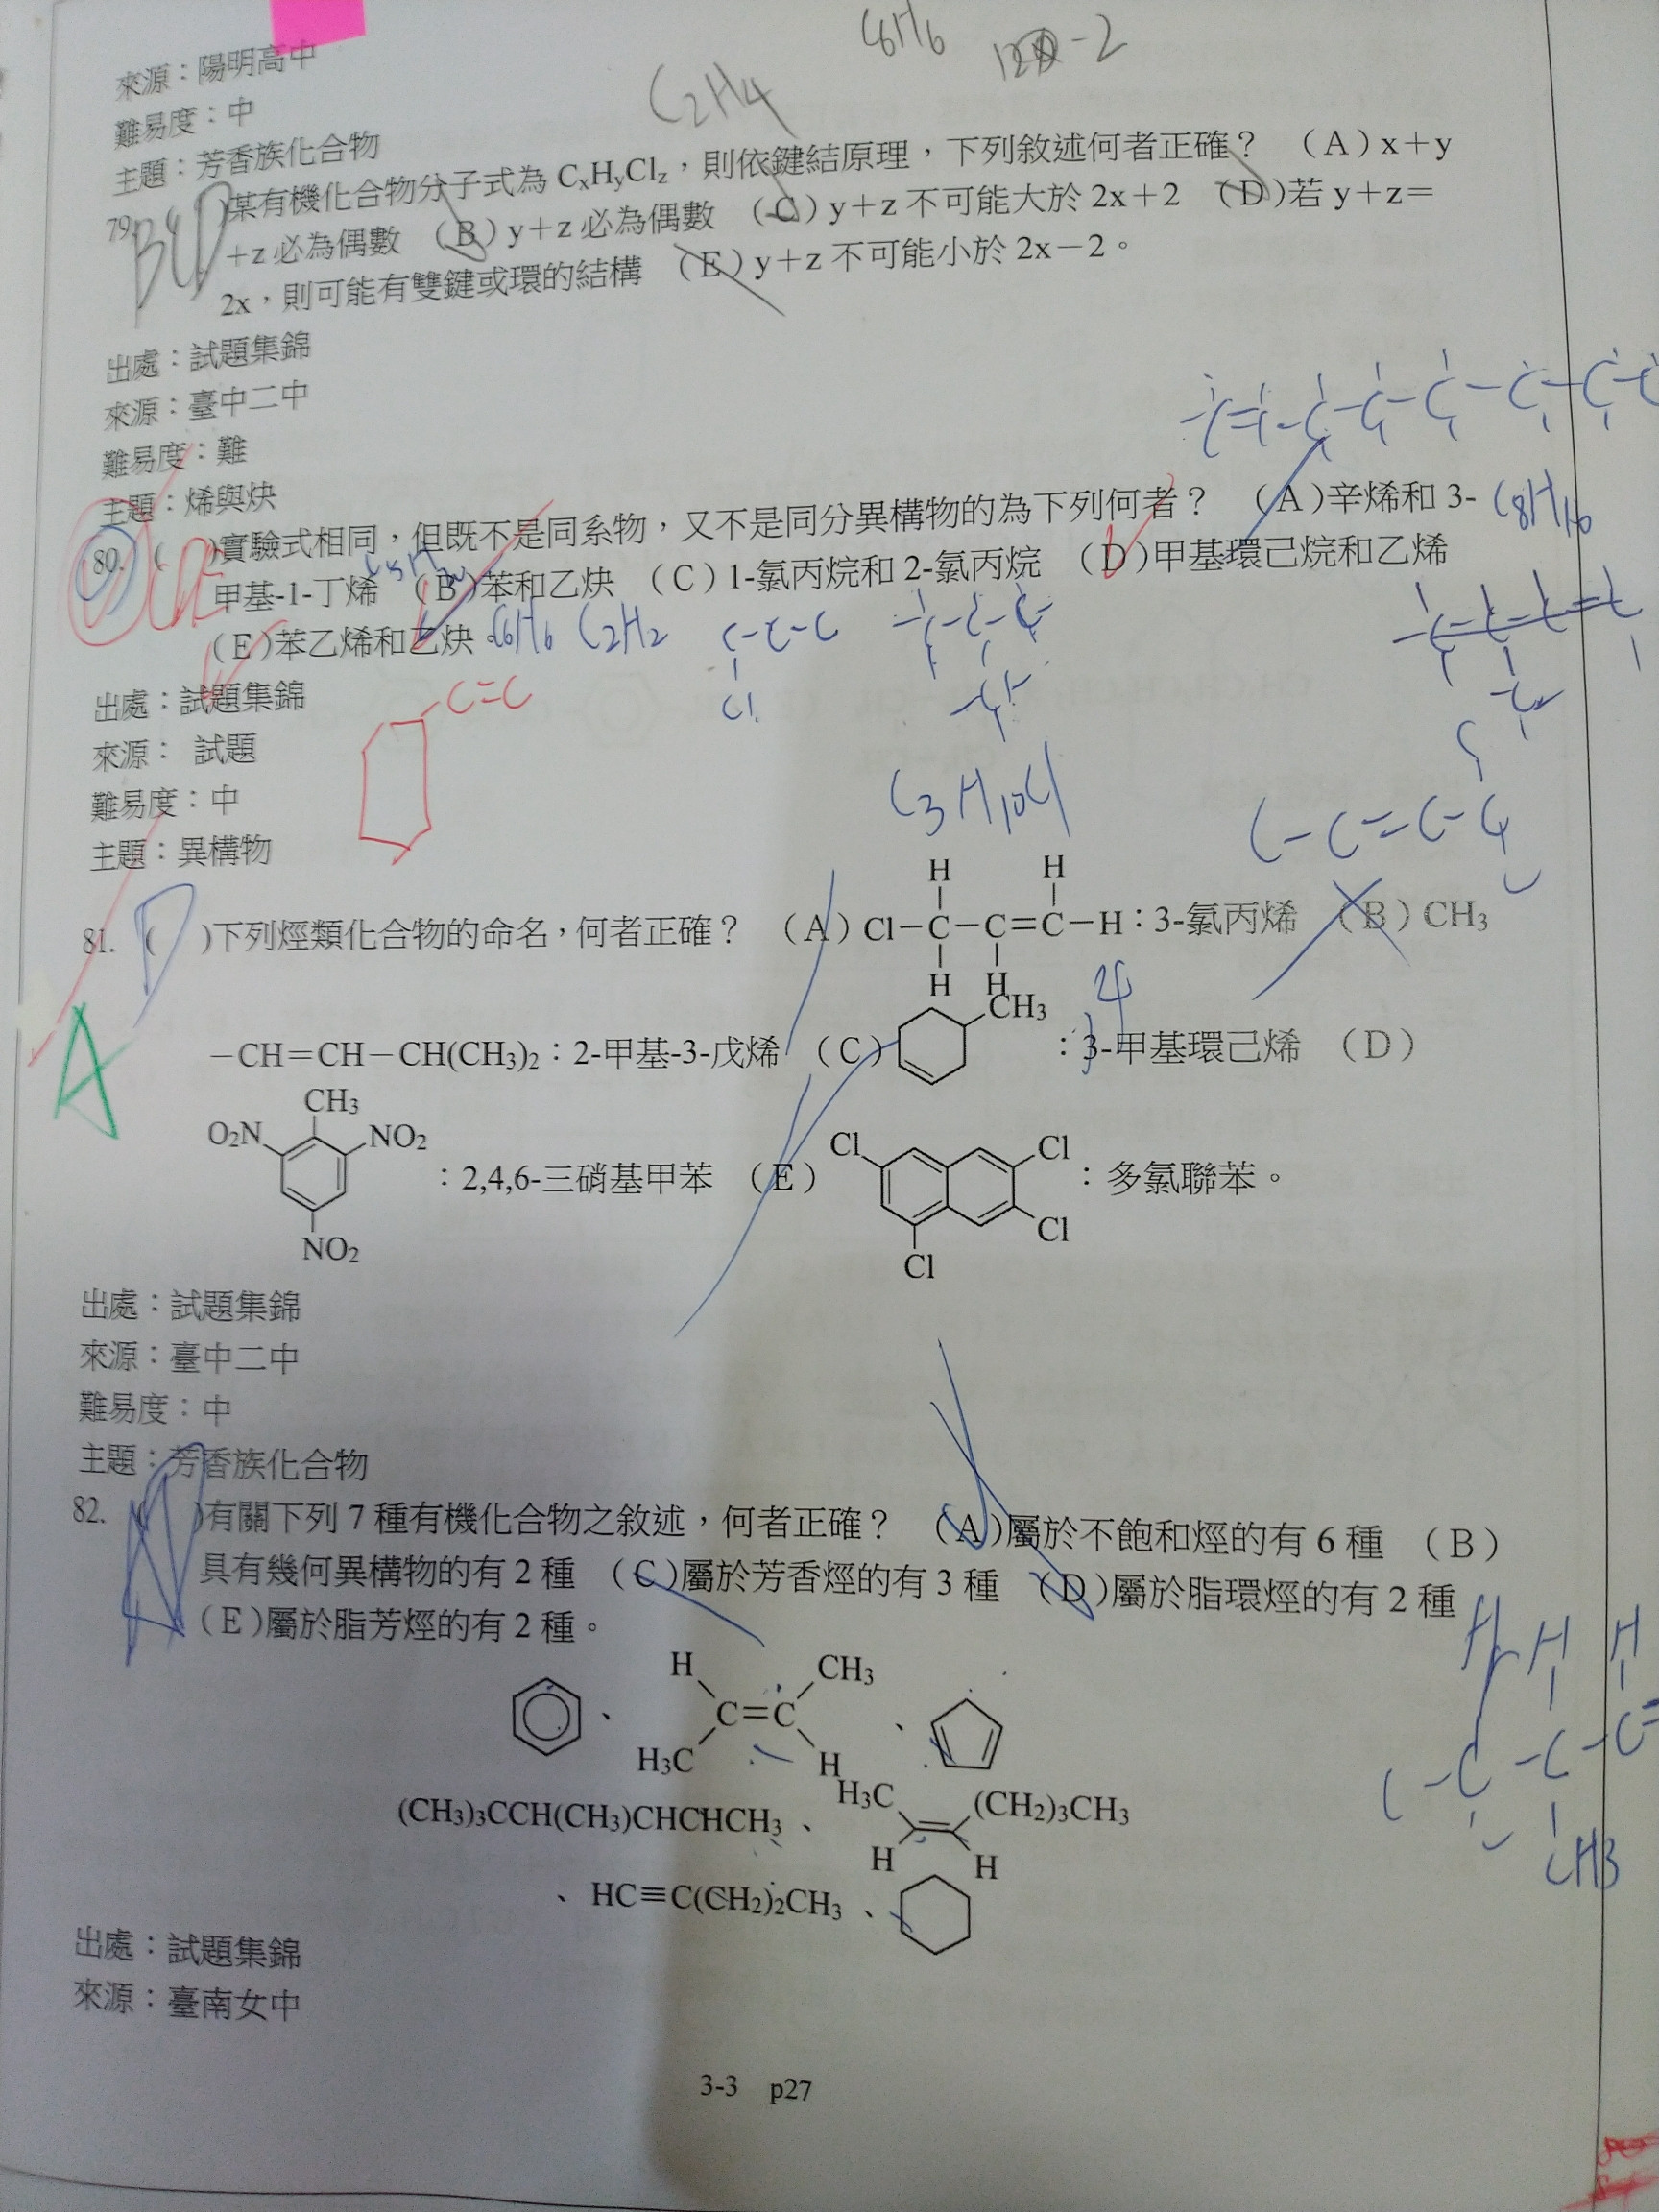 C6H6
12⊗-2
C2H4
來源：陽明高中
難易度：中
主題：芳香族化合物
79. BCD 某有機化合物分子式為 CxHyClz，則依鍵結原理，下列敘述何者正確？ （A）x＋y
＋z 必為偶數 （B）y＋z 必為偶數 （C）y＋z 不可能大於 2x＋2 （D）若 y＋z＝
2x，則可能有雙鍵或環的結構 （E）y＋z 不可能小於 2x－2。
出處：試題集錦
來源：臺中二中
難易度：難
主題：烯與炔
80. （ ）實驗式相同，但既不是同系物，又不是同分異構物的為下列何者？ （A）辛烯和 3- C8H16
甲基-1-丁烯 （B）苯和乙炔 （C）1-氯丙烷和 2-氯丙烷 （D）甲基環己烷和乙烯
（E）苯乙烯和乙炔 C6H6 C2H2
C-C-C
Cl
C=C
出處：試題集錦
來源： 試題
難易度：中
主題：異構物
C3H10Cl
C-C=C-C
81. （D）下列烴類化合物的命名，何者正確？ （A）Cl－C－C＝C－H：3-氯丙烯 （B）CH3
H H
H H
－CH＝CH－CH(CH3)2：2-甲基-3-戊烯 （C） CH3 ：3-甲基環己烯 （D）
A
CH3
O2N NO2 ：2,4,6-三硝基甲苯 （E） Cl Cl Cl Cl ：多氯聯苯。
NO2
出處：試題集錦
來源：臺中二中
難易度：中
主題：芳香族化合物
82. （ ）有關下列 7 種有機化合物之敘述，何者正確？ （A）屬於不飽和烴的有 6 種 （B）
具有幾何異構物的有 2 種 （C）屬於芳香烴的有 3 種 （D）屬於脂環烴的有 2 種
（E）屬於脂芳烴的有 2 種。
H CH3
、 C＝C 、
H3C H
(CH3)3CCH(CH3)CHCHCH3 、 H3C (CH2)3CH3
H H
、 HC≡C(CH2)2CH3 、
H H H
C-C-C-C=
CH3
出處：試題集錦
來源：臺南女中
3-3 p27